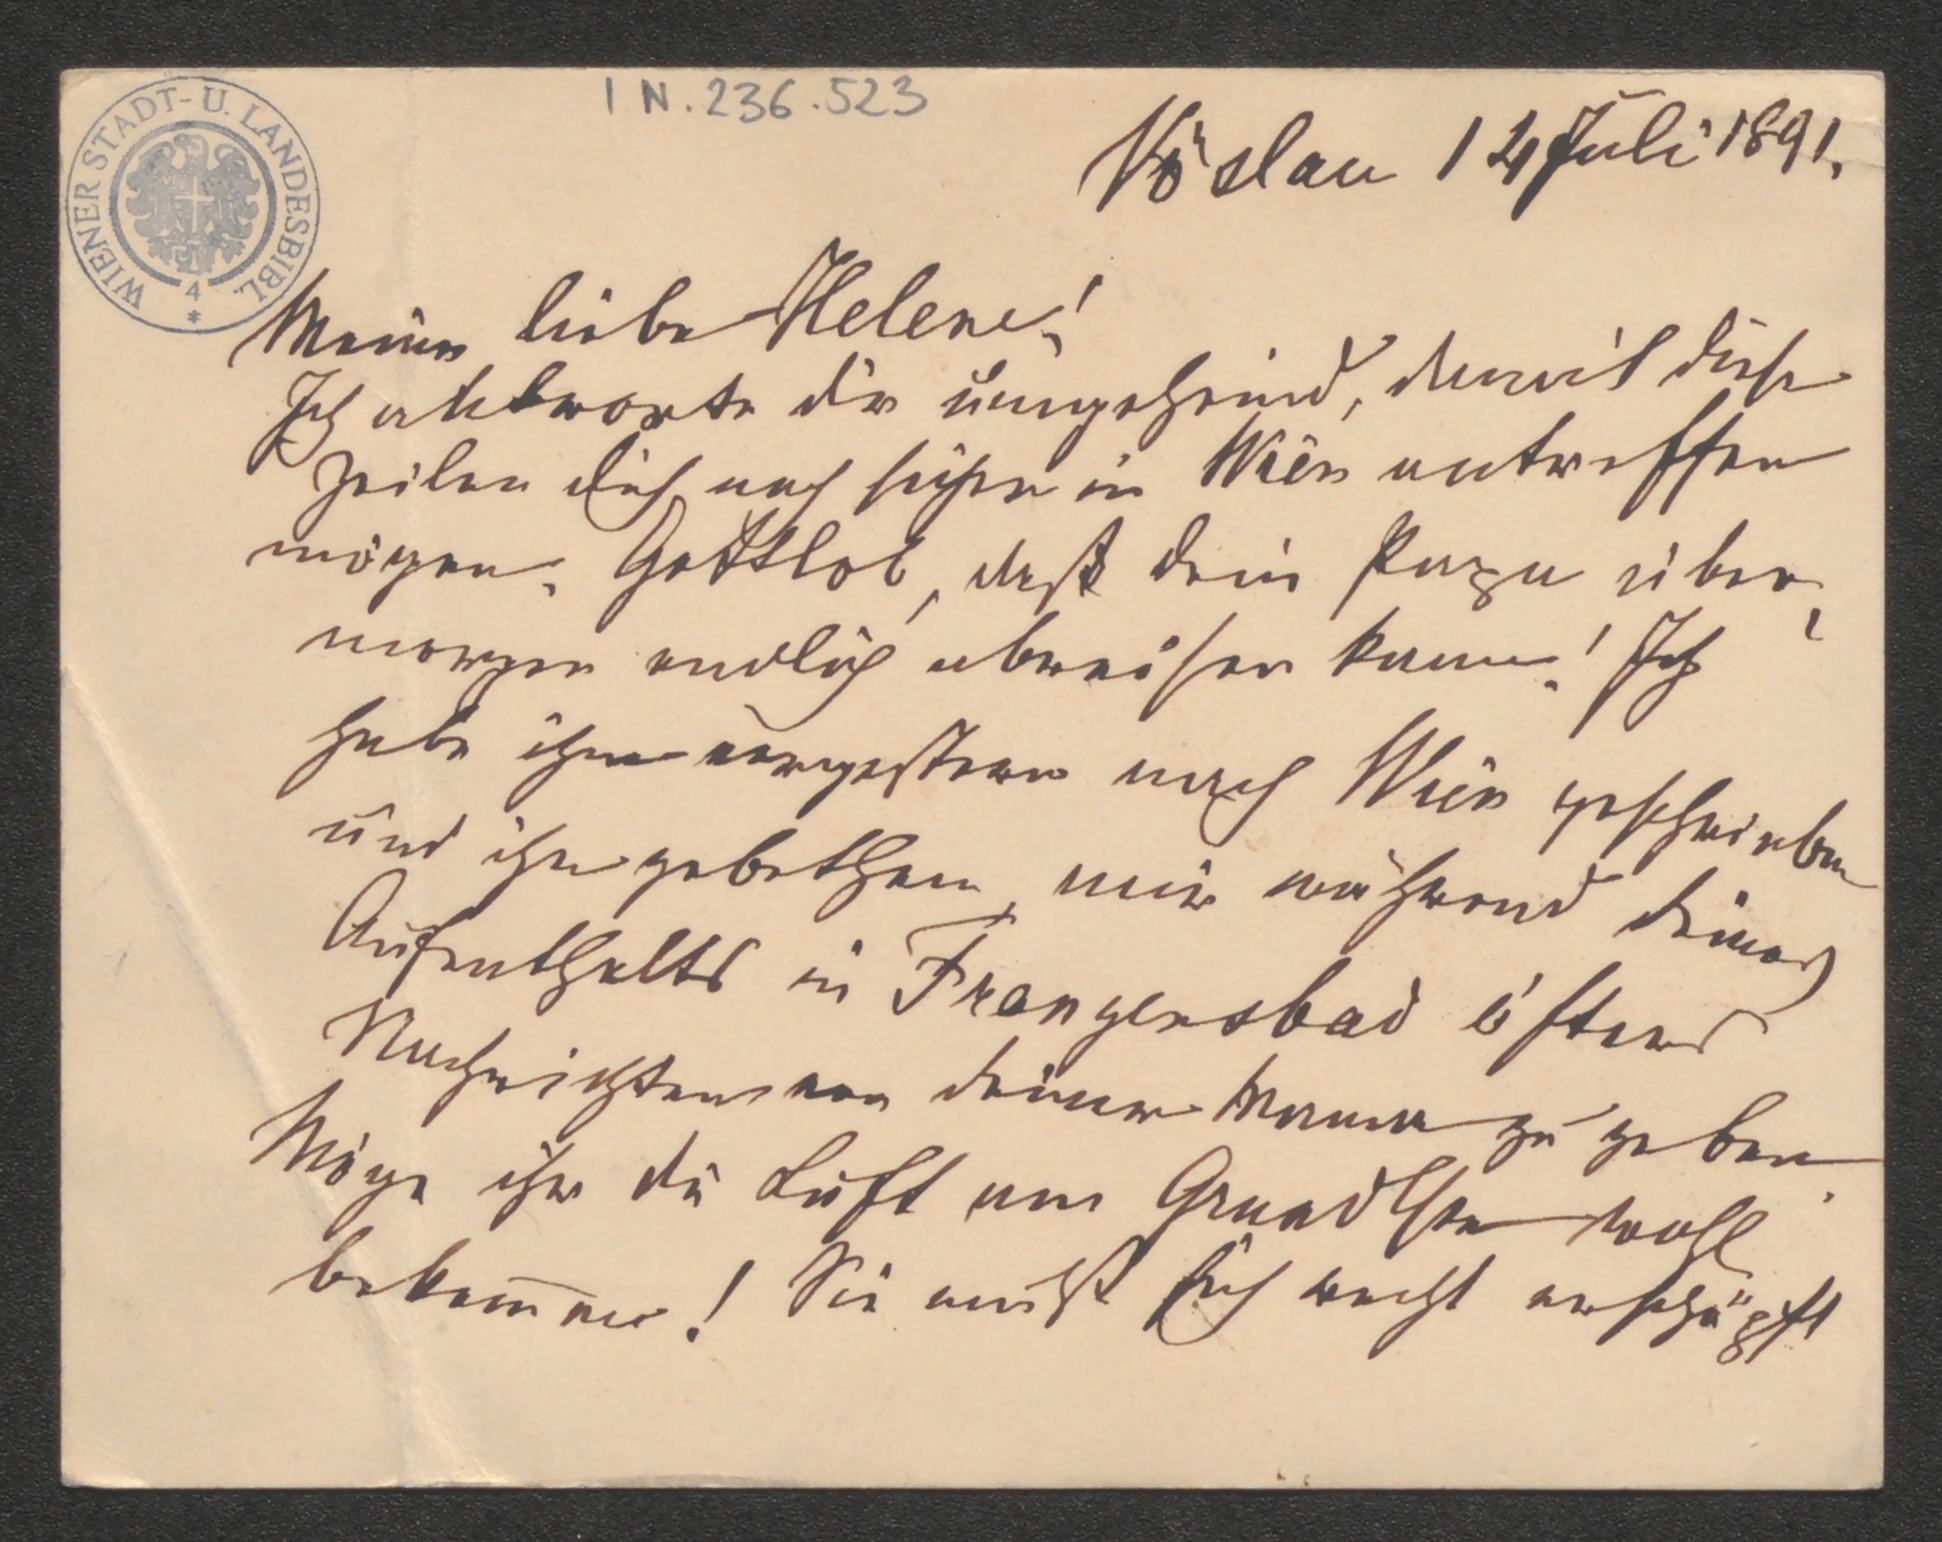 WIENER STADT- U. LANDESBIBL.
4
I N. 236.523
Vöslau 14 Juli 1891.
Meine liebe Helene!
Ich antworte dir umgehend, damit diese
Zeilen dich noch sicher in Wien antreffen
mögen. Gottlob, daß dein Papa über-
morgen endlich abreisen kann! Ich
habe ihm vorgestern nach Wien geschrieben
und ihn gebethen, mir während deines
Aufenthalts in Franzensbad öfters
Nachrichten von deiner Mama zu geben.
Möge ihr die Luft am Grundlsee wohl
bekommen! Sie muß sich recht erschöpft